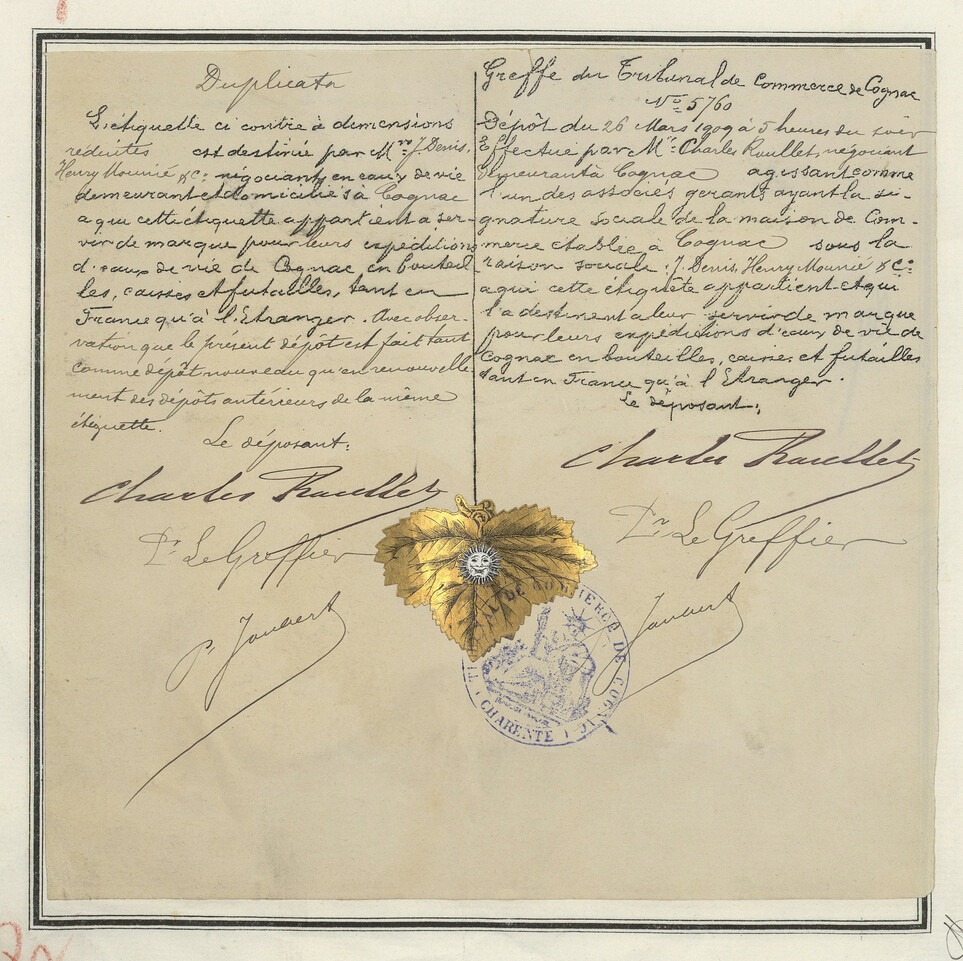 Duplicata
L'étiquette ci contre à dimensions
réduites est destinée par Mrs J. Denis,
Henry Mounié & Co négociant en eaux de vie
demeurant et domiciliés à Cognac
a qui cette étiquette appartient a ser-
vir de marque pour leurs expéditions
d'eaux de vie de Cognac en bouteil
les, caisses et futailles, tant en
France qu'à l'Etranger. Avec obser-
vation que le présent dépôt est fait tant
comme dépôt nouveau qu'en renouvelle
ment des dépôts antérieurs de la même
étiquette.
Le déposant:
Charles Roullet
Pr Le Greffier
P. Joubert
Greffe du Tribunal de Commerce de Cognac
No 5760
Dépôt du 26 Mars 1909 à 5 heures du soir
Effectué par Mr Charles Roullet, négociant
demeurant à Cognac agissant comme
l'un des associés gerants ayant la si-
gnature sociale de la maison de Com-
merce etablie à Cognac sous la
raison sociale: J. Denis, Henry Mounié & Co
a qui cette étiquête appartient et qui
l'a destinent a leur servir de marque
pour leurs expéditions d'eaux de vie de
Cognac en bouteilles, caisses et futailles
tant en France qu'à l'Etranger.
Le déposant:
Charles Roullet
Pr Le Greffier
Joubert
DE COMMERCE DE COGNAC
(CHARENTE)